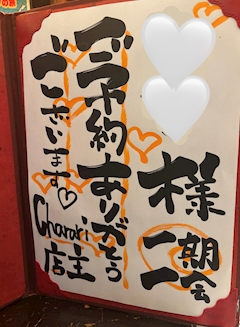 様
一期一会
ご予約ありがとう
ございます♡
Charari
店主